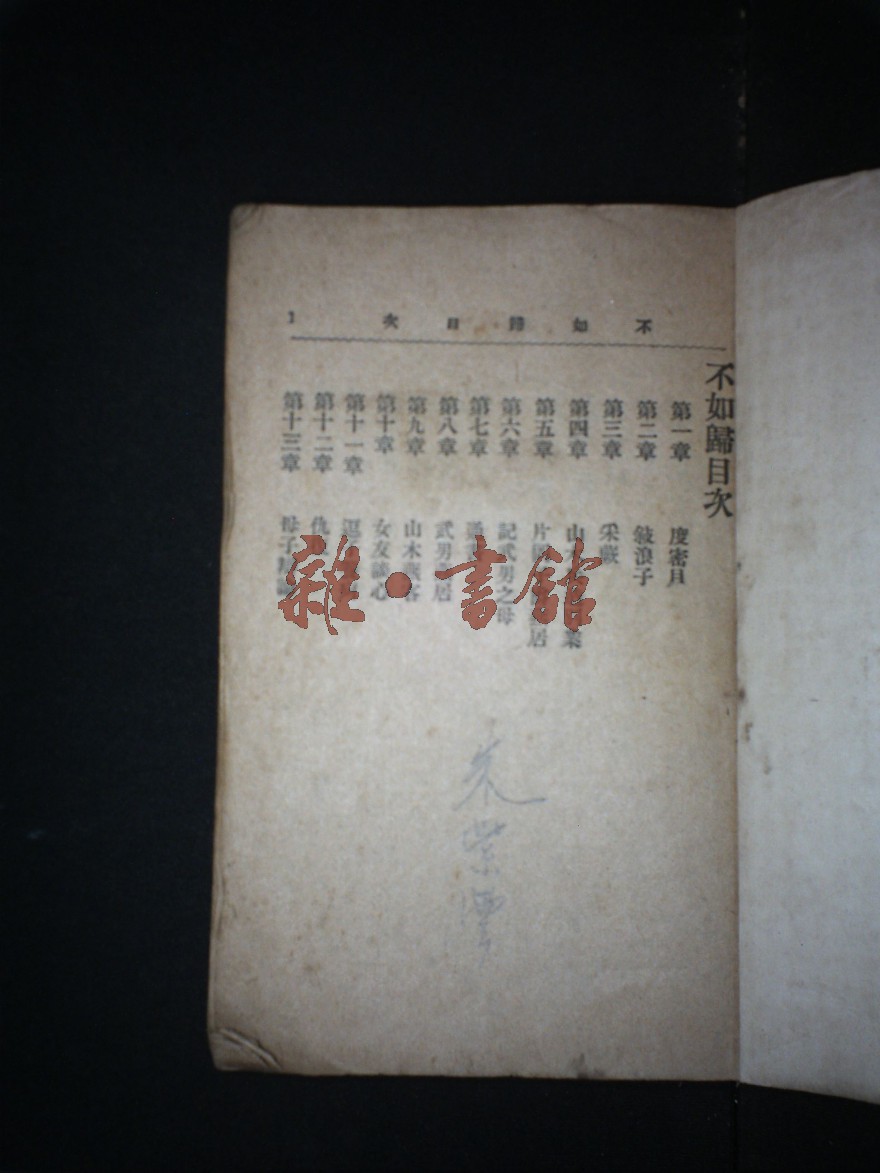 不如歸目次
1
不如歸目次
第一章 度密月
第二章 敍浪子
第三章 采蕨
第四章 山木 業
第五章 片岡 居
第六章 記武男之母
第七章
第八章 武男 居
第九章 山木 客
第十章 女友談心
第十一章
第十二章 仇
第十三章 母子
雜·書館
朱紫